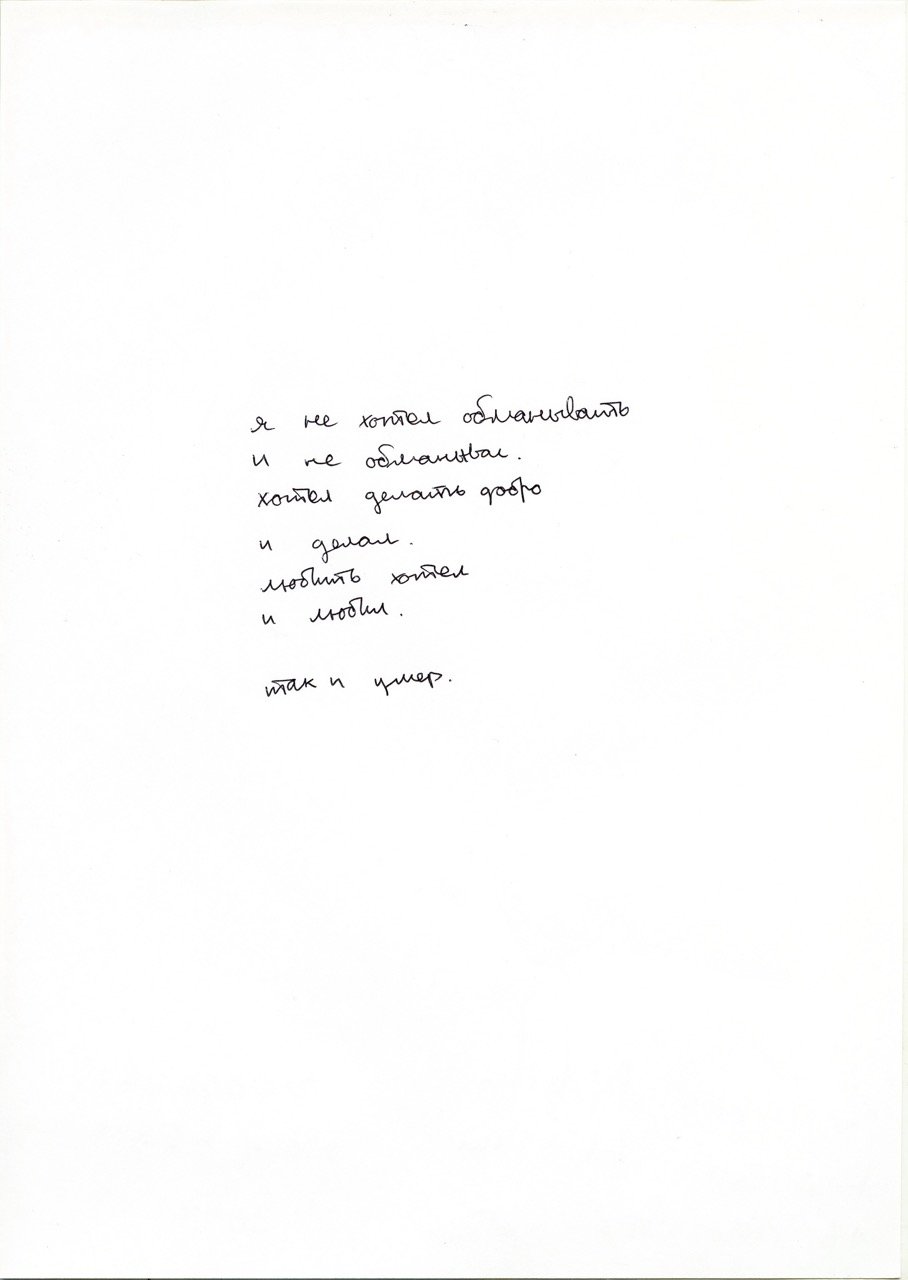 я не хотел обманывать
и не обманывал.
хотел делать добро
и делал.
любить хотел
и любил.
так и умер.